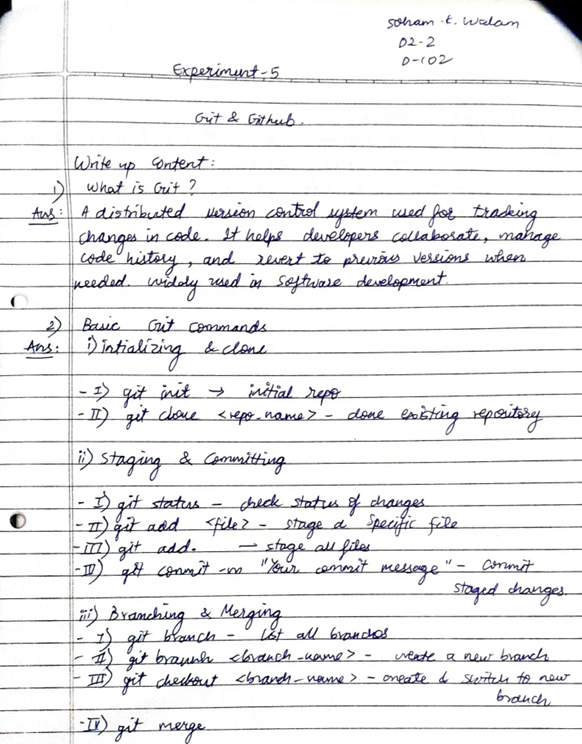 Soham. t. Walam
D2-2
D-102
Experiment-5
Git & Github.
Write up Content:
1) What is Git ?
Ans: A distributed version control system used for tracking
changes in code. It helps developers collaborate, manage
code history, and revert to previous versions when
needed. widely used in software development.
2) Basic Git commands
Ans: i) intializing & clone
- I) git init → initial repo
- II) git clone <repo-name> - clone existing repository
ii) Staging & Committing
- I) git status - check status of changes
- II) git add <file> - stage a specific file
- III) git add. → stage all files
- IV) git commit -m "Your commit message" - commit
staged changes.
iii) Branching & Merging
- I) git branch - list all branches
- II) git braunh <branch-name> - create a new branch
- III) git checkout <branch-name> - create & switch to new
branch
- IV) git merge